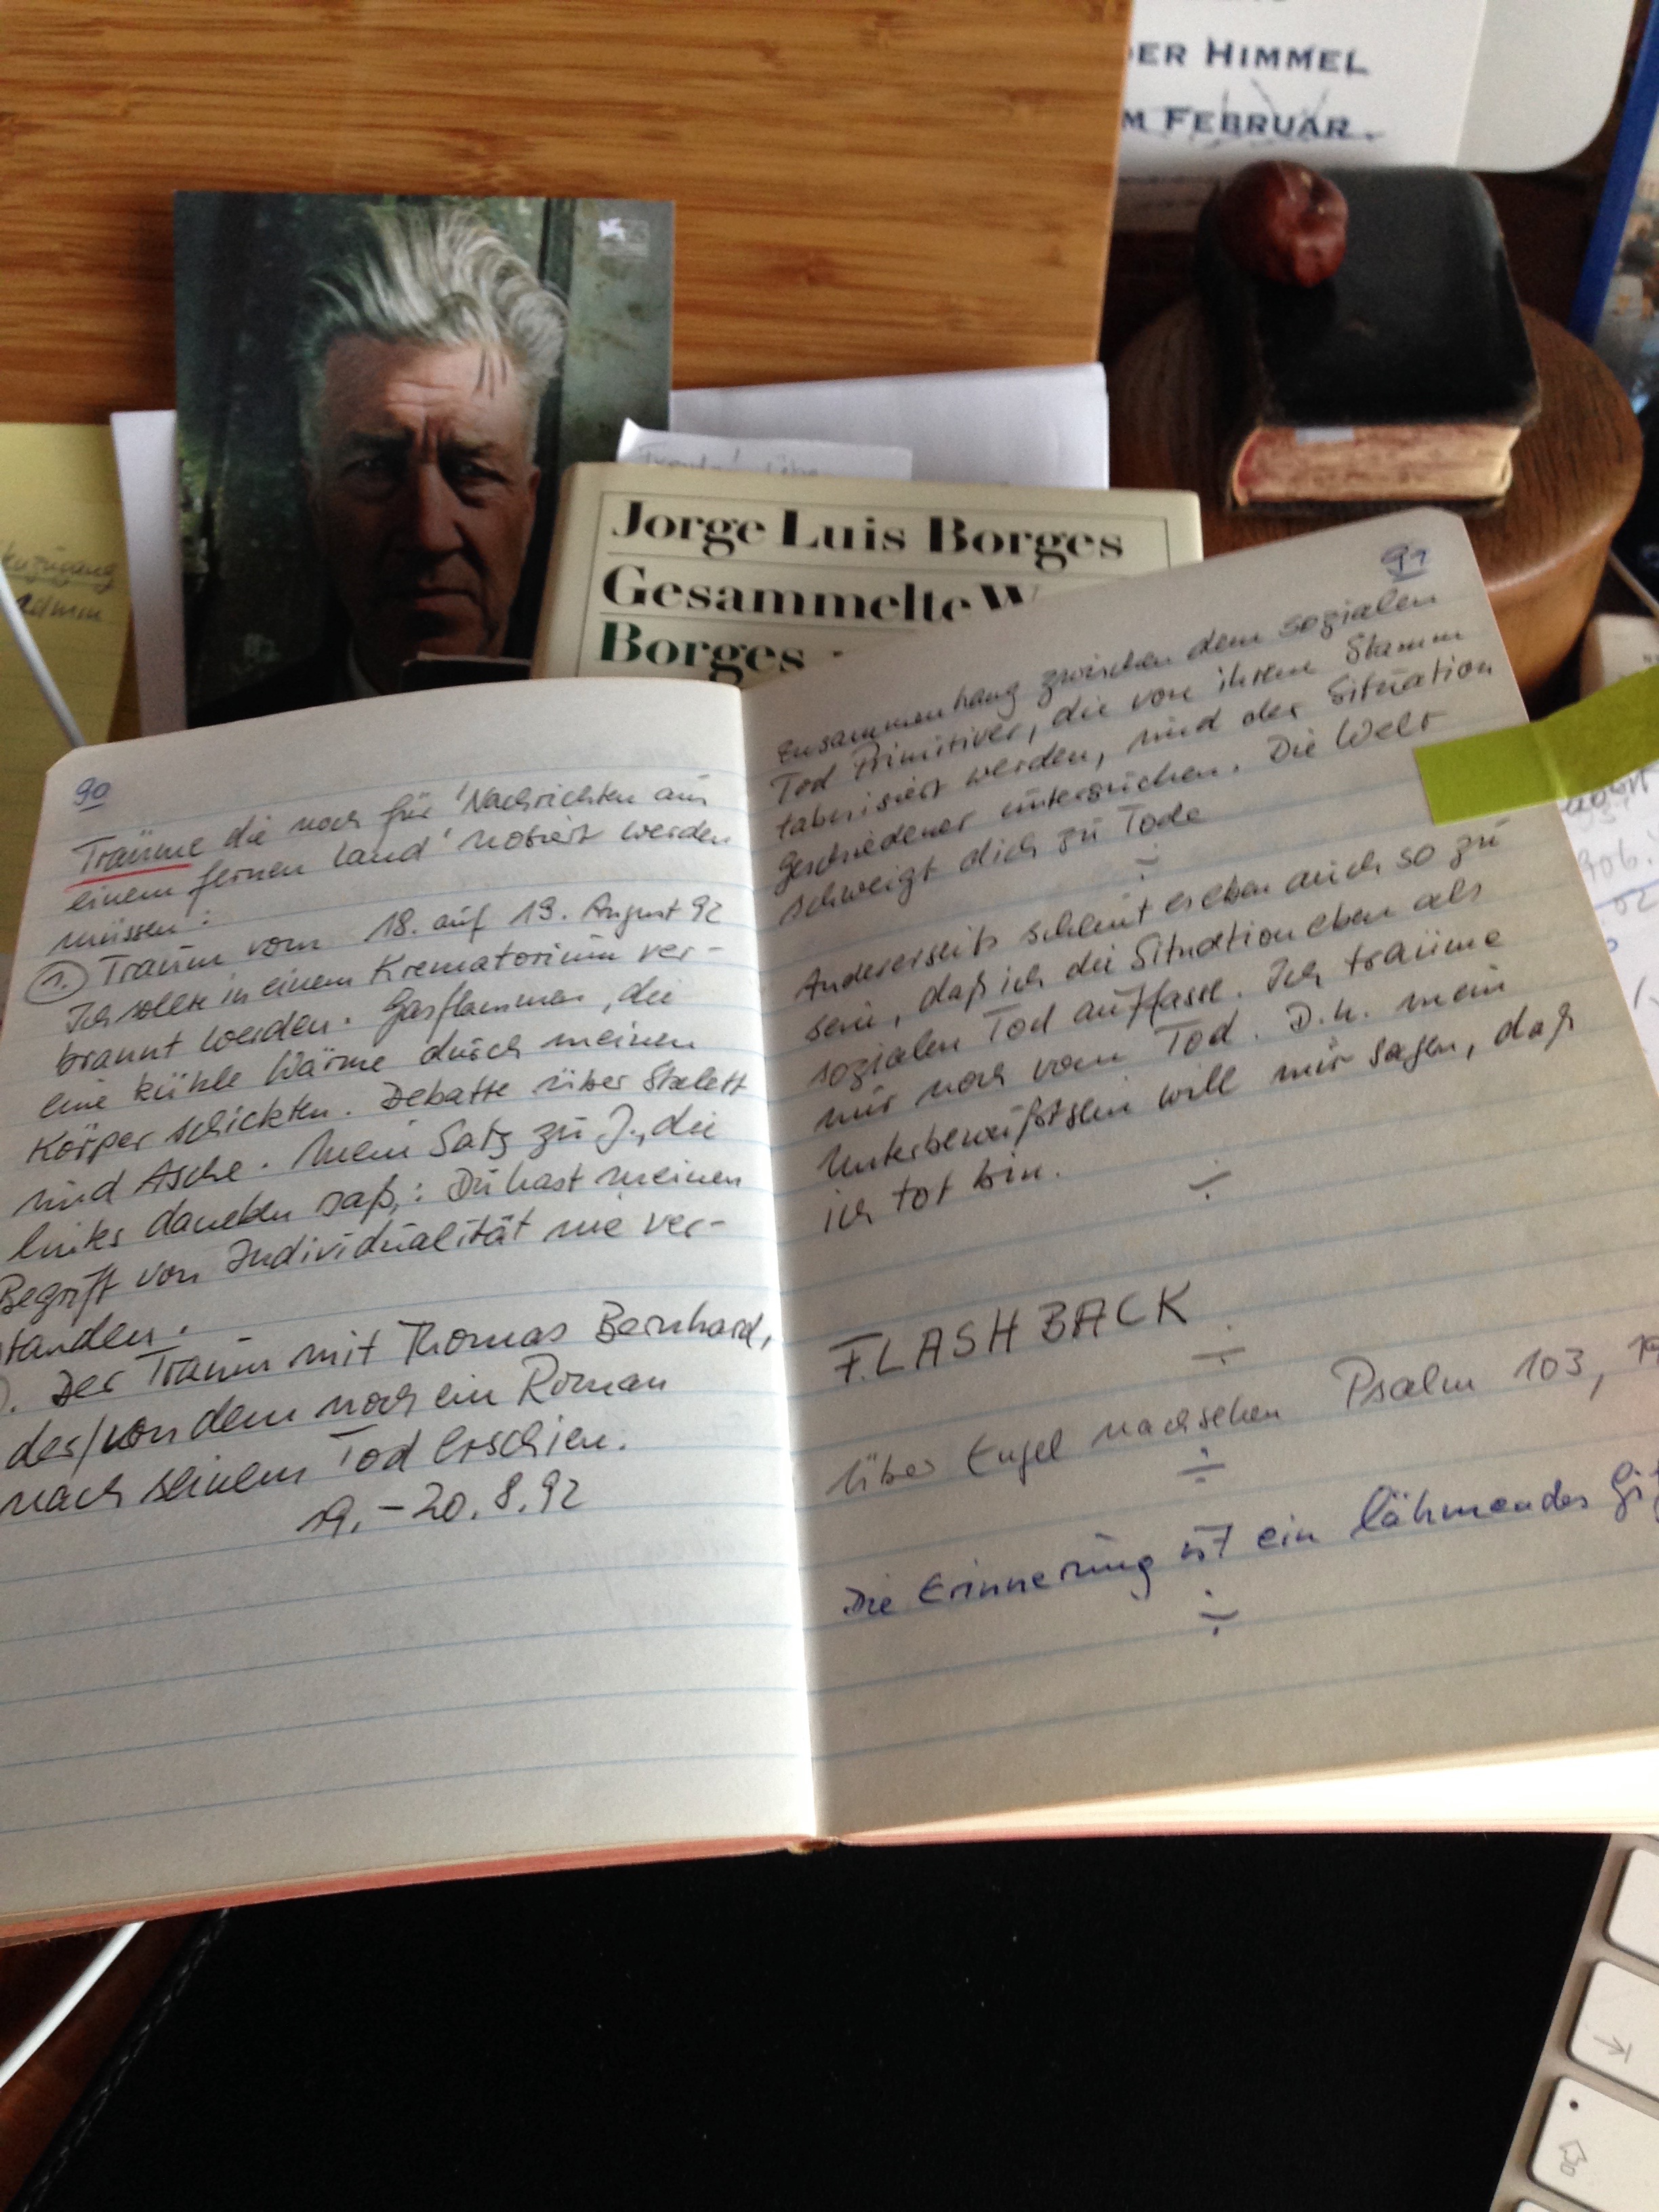 DER HIMMEL
M FEBRUAR.
Jorge Luis Borges
Gesammelte W
Borges
90
Träume die noch für 'Nachrichten aus
einem fernen Land' notiert werden
müssen:
1. Traum vom 18. auf 19. August 92
Ich sollte in einem Krematorium ver-
brannt werden. Gasflammen, die
eine kühle Wärme durch meinen
Körper schickten. Debatte über Skelett
und Asche. Mein Satz zu J., die
links daneben saß,: Du hast meinen
Begriff von Individualität nie ver-
standen.
). Der Traum mit Thomas Bernhard,
des/von dem noch ein Roman
nach seinem Tod erschien.
19.-20.8.92
91
Zusammenhang zwischen dem sozialen
Tod Primitiver, die von ihrem Stamm
tabuisiert werden, und der Situation
Geschiedener untersuchen. Die Welt
schweigt dich zu Tode
÷
Andererseits scheint es eben auch so zu
sein, daß ich die Situation eben als
sozialen Tod auffasse. Ich träume
nur noch vom Tod. D.h. mein
Unterbewußtsein will mir sagen, daß
ich tot bin.
÷
FLASHBACK
÷
über Engel nachsehen Psalm 103, 19
÷
Die Erinnerung ist ein lähmendes Gif
÷